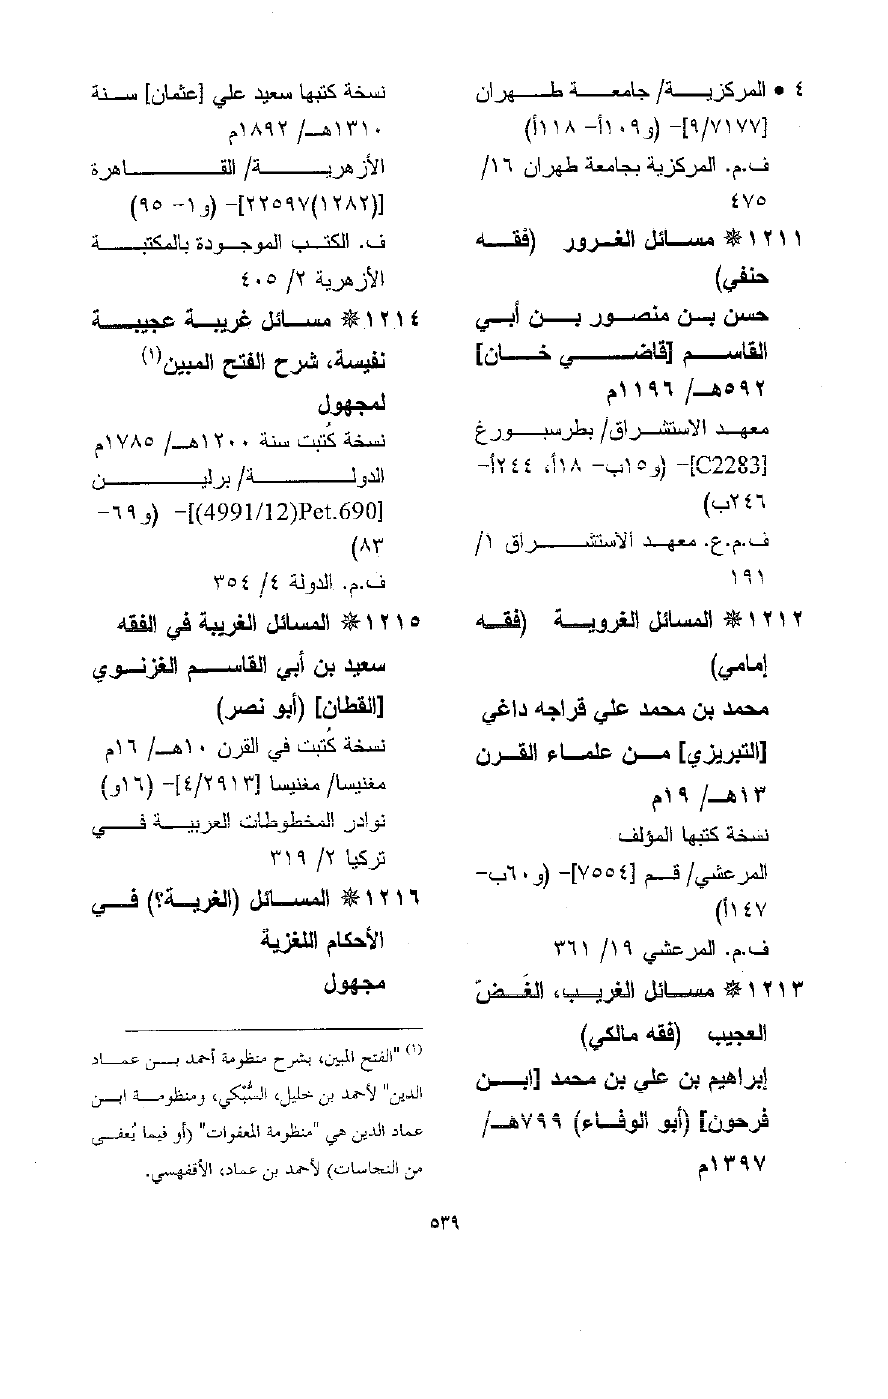 ٤ • المركزية/ جامعة طهران
[٩/٧١٧٧]- (و١٠٩أ- ١١٨أ)
ف.م. المركزية بجامعة طهران ١٦/
٤٧٥
١٢١١❊ مسائل الغرور (فقه
حنفي)
حسن بن منصور بن أبي
القاسم [قاضي خان]
٥٩٢هـ/ ١١٩٦م
معهد الاستشراق/ بطرسبورغ
[C2283]- (و١٥ب- ١٨أ، ٢٤٤أ-
٢٤٦ب)
ف.م.ع. معهد الاستشراق ١/
١٩١
١٢١٢❊ المسائل الغروية (فقه
إمامي)
محمد بن محمد علي قراجه داغي
[التبريزي] من علماء القرن
١٣هـ/ ١٩م
نسخة كتبها المؤلف
المرعشي/ قم [٧٥٥٤]- (و٦٠ب-
١٤٧أ)
ف.م. المرعشي ١٩/ ٣٦١
١٢١٣❊ مسائل الغريب، الغَضّ
العجيب (فقه مالكي)
إبراهيم بن علي بن محمد [ابن
فرحون] (أبو الوفاء) ٧٩٩هـ/
١٣٩٧م
نسخة كتبها سعيد علي [عثمان] سنة
١٣١٠هـ/ ١٨٩٢م
الأزهرية/ القاهرة
[(١٢٨٢)٢٢٥٩٧]- (و١- ٩٥)
ف. الكتب الموجودة بالمكتبة
الأزهرية ٢/ ٤٠٥
١٢١٤❊ مسائل غريبة عجيبة
نفيسة، شرح الفتح المبين(١)
لمجهول
نسخة كُتبت سنة ١٢٠٠هـ/ ١٧٨٥م
الدولة/ برلين
[Pet.690(4991/12)]- (و٦٩-
٨٣)
ف.م. الدولة ٤/ ٣٥٤
١٢١٥❊ المسائل الغريبة في الفقه
سعيد بن أبي القاسم الغزنوي
[القطان] (أبو نصر)
نسخة كُتبت في القرن ١٠هـ/ ١٦م
مغنيسا/ مغنيسا [٤/٢٩١٣]- (١٦و)
نوادر المخطوطات العربية في
تركيا ٢/ ٣١٩
١٢١٦❊ المسائل (الغرية؟) في
الأحكام اللغزية
مجهول
(١) "الفتح المبين، بشرح منظومة أحمد بن عماد
الدين" لأحمد بن خليل، السُّبْكي، ومنظومة ابن
عماد الدين هي "منظومة المعفوات" (أو فيما يُعفى
من النجاسات) لأحمد بن عماد، الأقفهسي.
٥٣٩